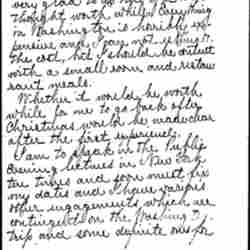 very glad to
thought worth while. Everything
in Washington is horribly ex-
pensive and I am not
The cost, but I should be content
with a small room and restau
rant meals.
Whether it would be worth
while for me to go back after
Christmas would be made clear
after the first experience.
I am to speak in the Public
Evening lectures in New York
ten times and soon must fix
my dates and I have various
other engagements which are
contingent on the Washing
trip and some definite ones for